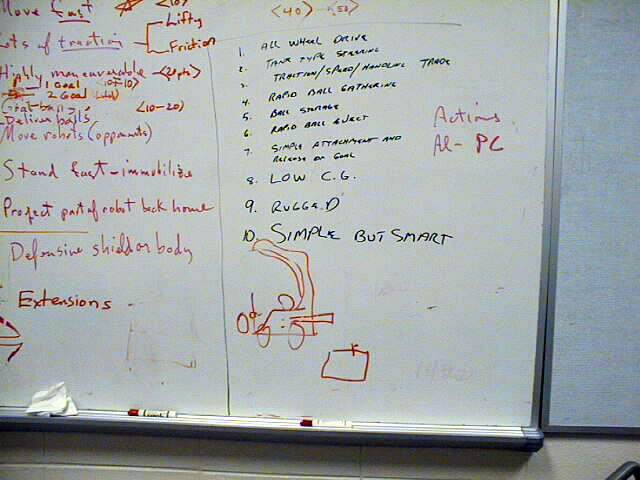 Move fast <10>
Lots of traction
Lifty
Friction
Highly maneuverable - <20pts>
1 Goal <10-10>
2 Goal
<10-20>
Deliver balls
Move robots (opponents)
Stand fast - immobilize
Project part of robot back home
Defensive shield or body
Extensions -
<40> - <50>
1. ALL WHEEL DRIVE
2. TANK TYPE STEERING
3. TRACTION/SPEED/HANDLING TRADE
4. RAPID BALL GATHERING
5. BALL STORAGE
6. RAPID BALL EJECT
7. SIMPLE ATTACHMENT AND
RELEASE ON GOAL
8. LOW C.G.
9. RUGGED
10. SIMPLE BUT SMART
Actions
Al - PC